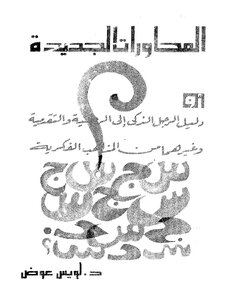 المحاورات الجديدة
أو
دليل الرجل الذكى إلى الرجعية والتقدمية
وغيرهما من المذاهب الفكرية
د. لويس عوض